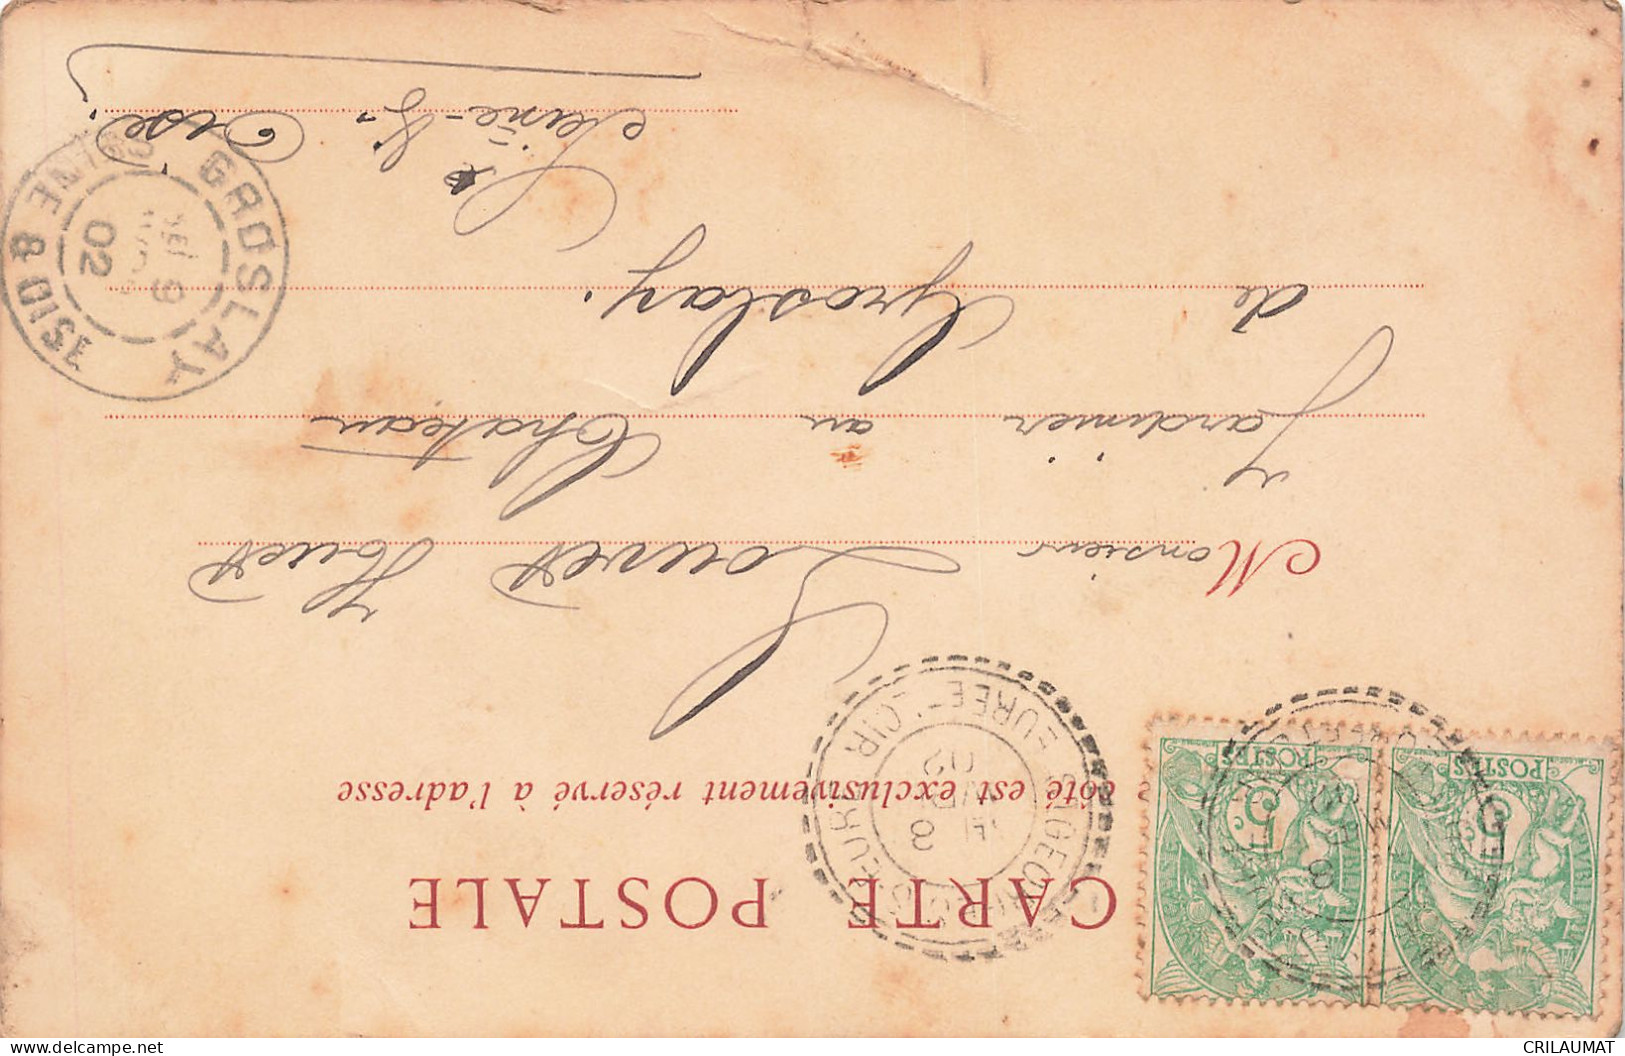 CARTE POSTALE
côté est exclusivement réservé à l'adresse
Monsieur Louvet Huet
Jardinier au Château
de Groslay.
Seine-&-Oise.
GROSLAY
SEINE & OISE
9
02
EURE-ET-CIR
8
02
POSTES
5
POSTES
5
CRILAUMAT